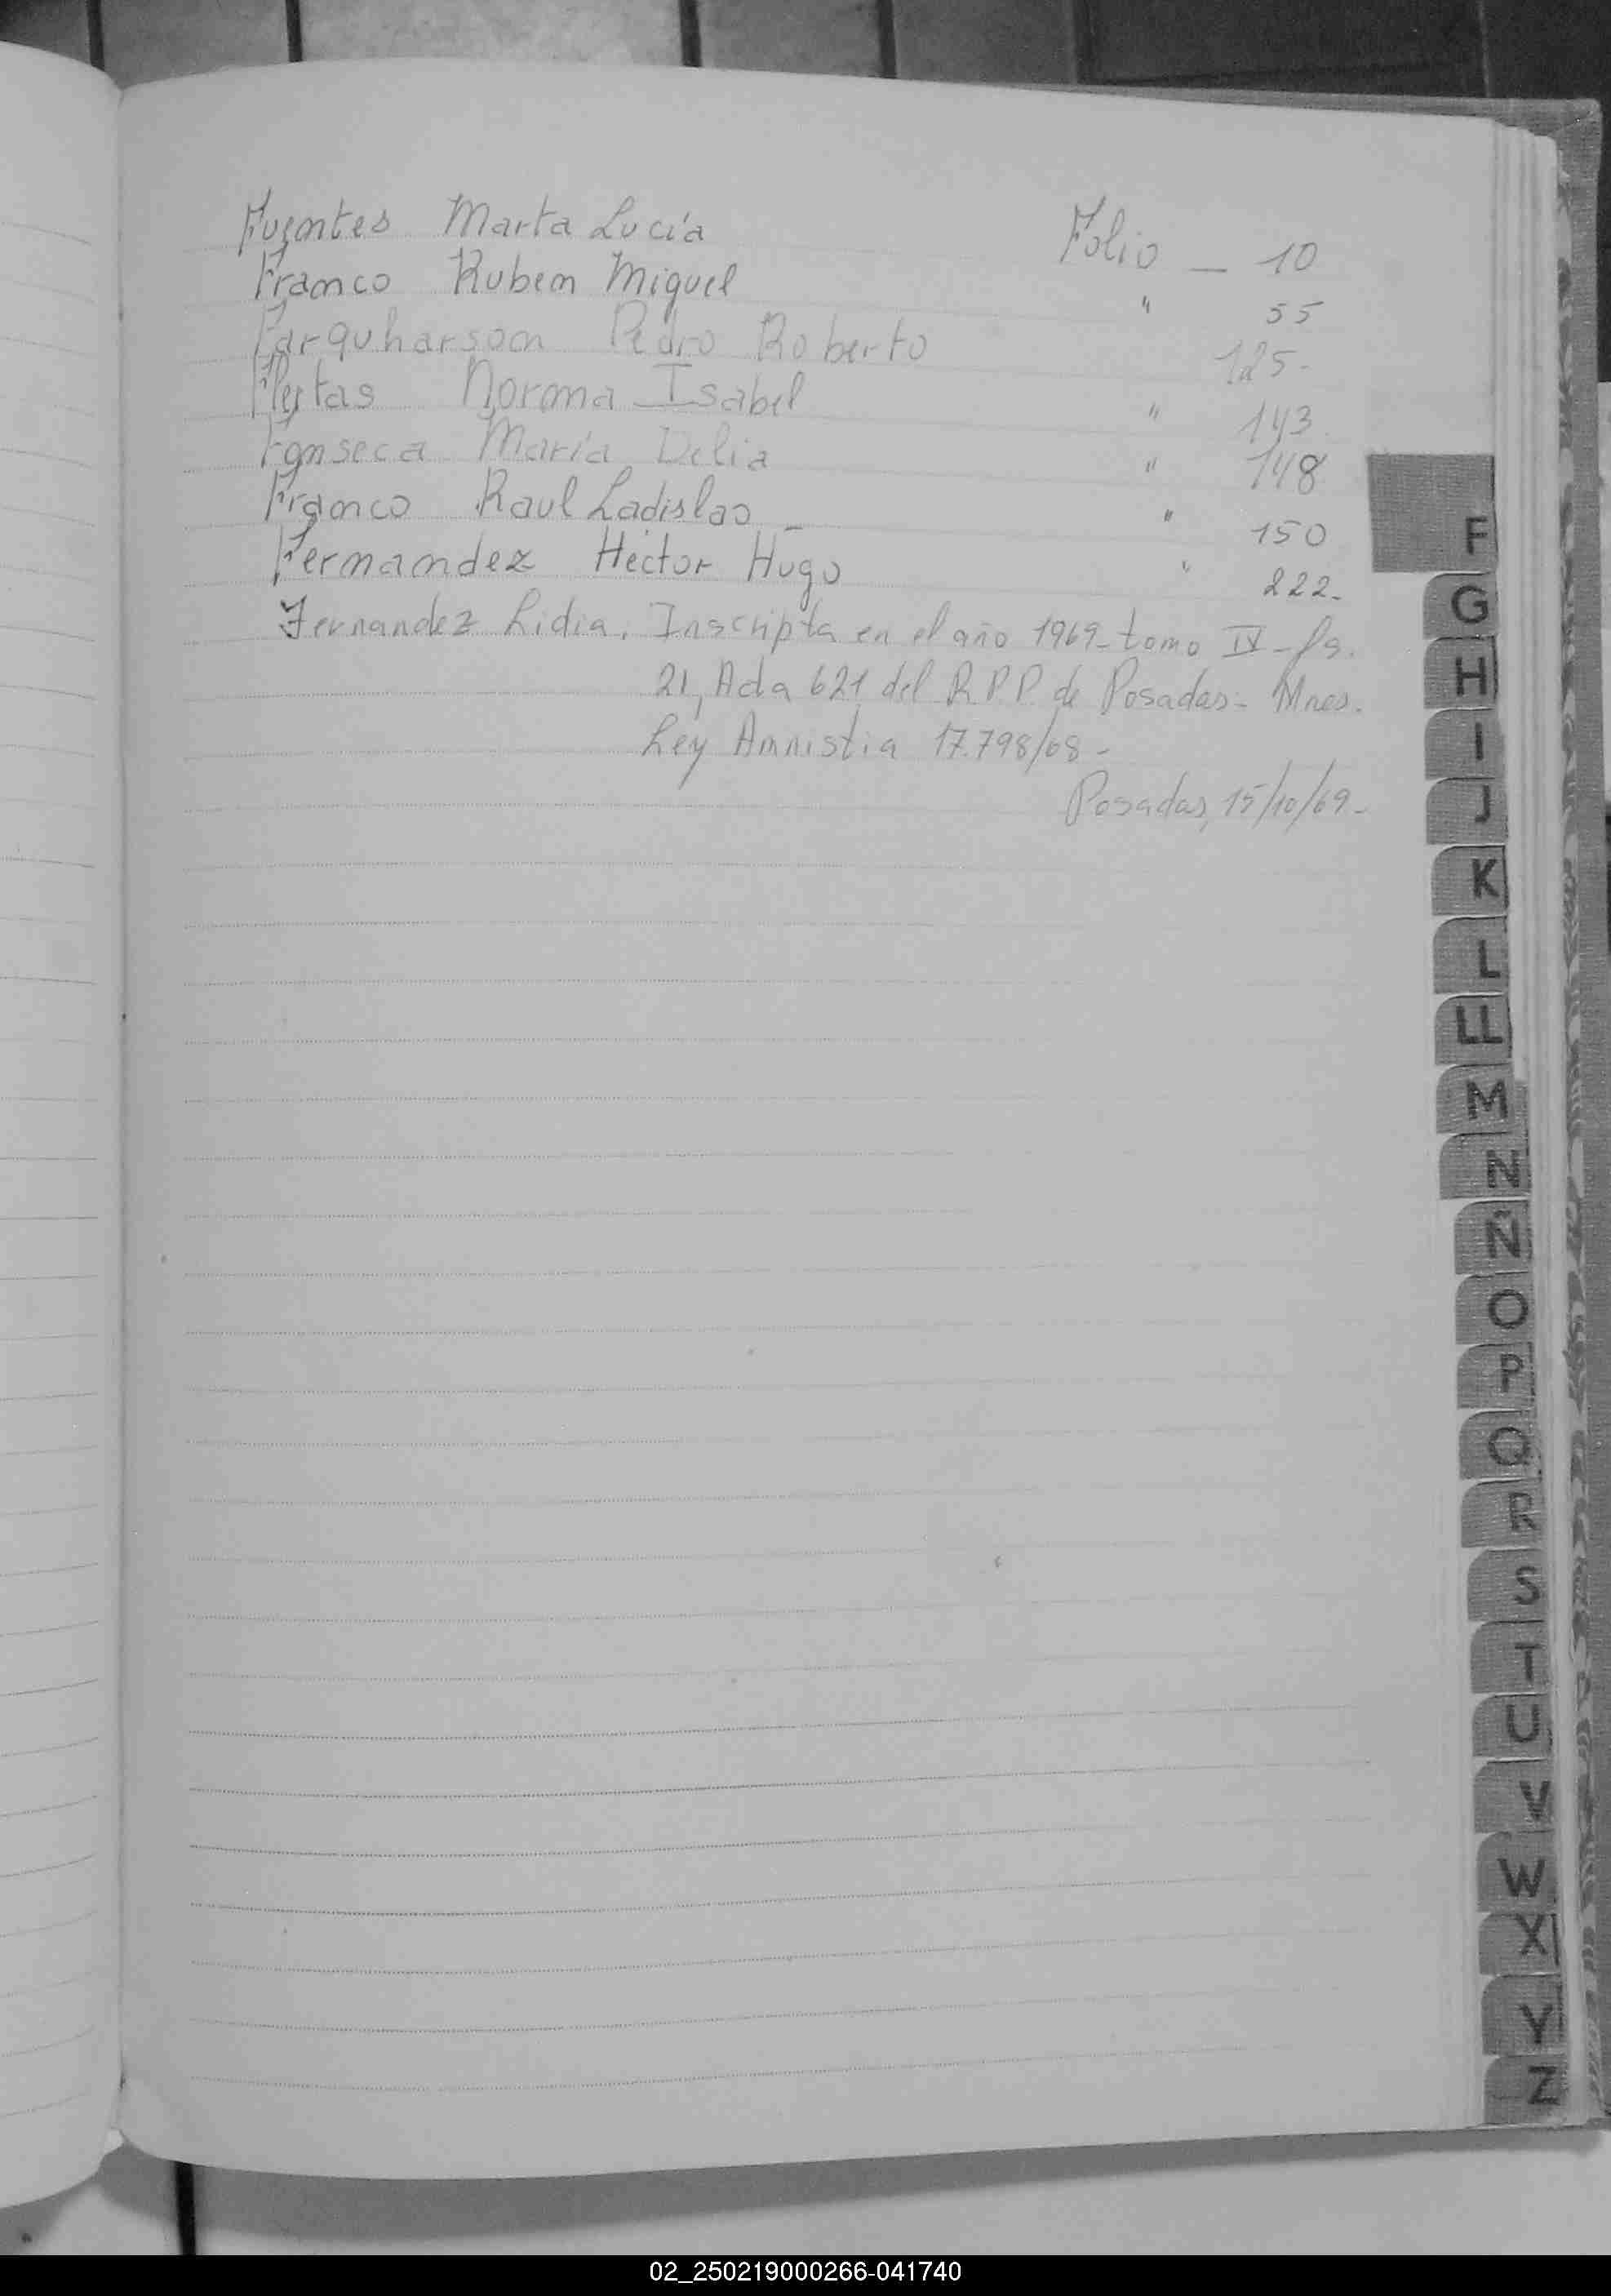 Fuentes Marta Lucía Folio - 10
Franco Ruben Miguel " 55
Farquharson Pedro Roberto 125-
Fleitas Norma Isabel " 143
Fonseca María Delia " 148
Franco Raul Ladislao - " 150
Fernandez Hector Hugo " 222-
Fernandez Lidia. Inscripta en el año 1969-tomo IV-fs.
21, Acta 621 del R.P.P. de Posadas- Mnes.
Ley Amnistia 17.798/68-
Posadas, 15/10/69-
F
G
H
I
J
K
L
LL
M
N
Ñ
O
P
Q
R
S
T
U
V
W
X
Y
Z
02_250219000266-041740